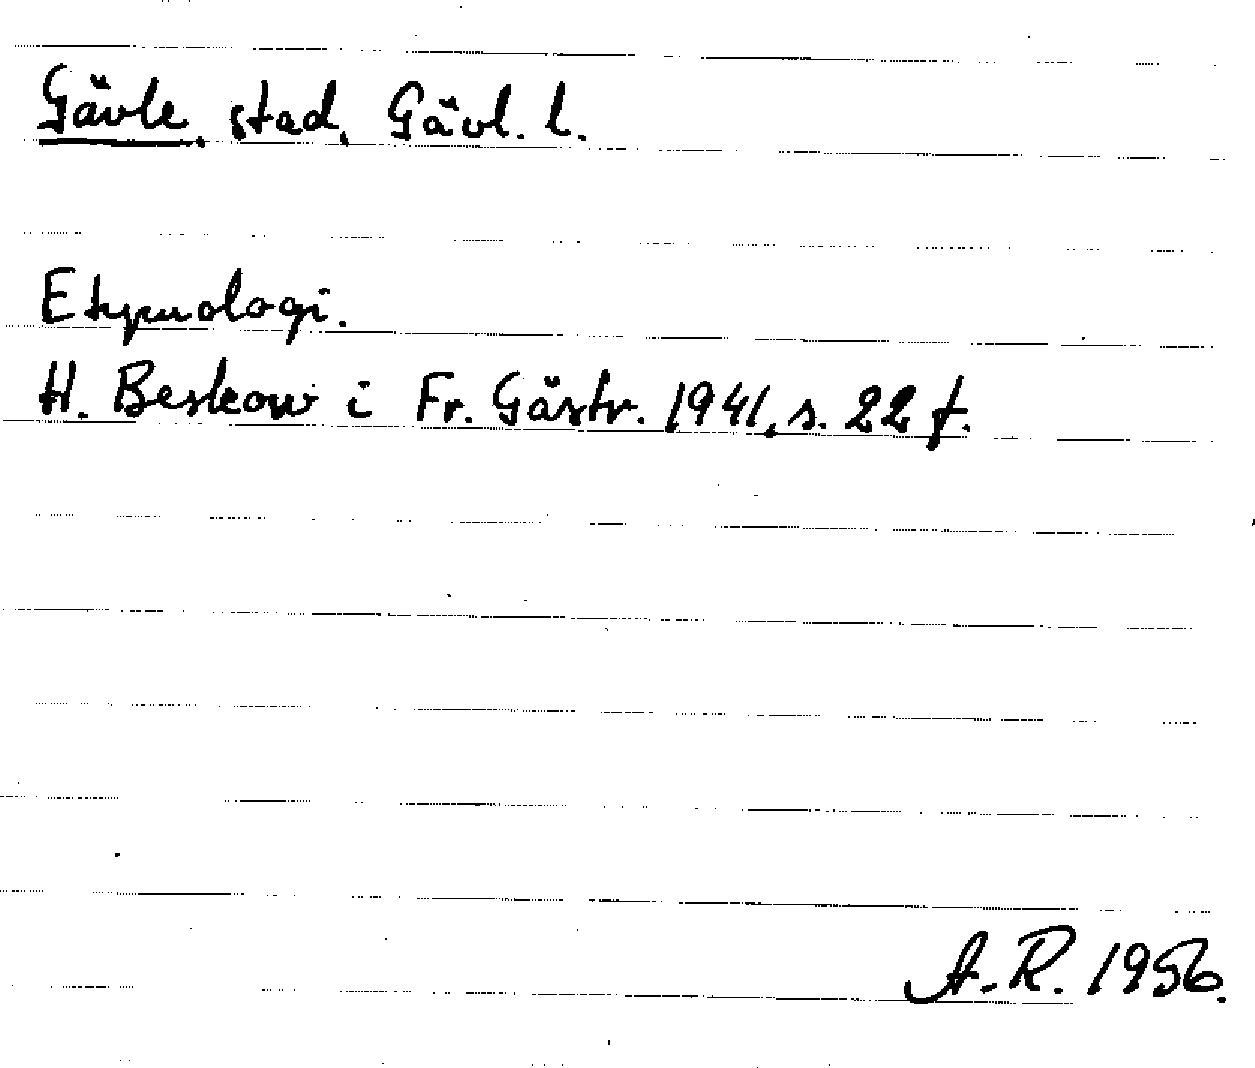 Gävle, stad, Gävl. l.
Etymologi.
H. Beskow i Fr. Gästr. 1941, s. 22 f.
A.R. 1956.